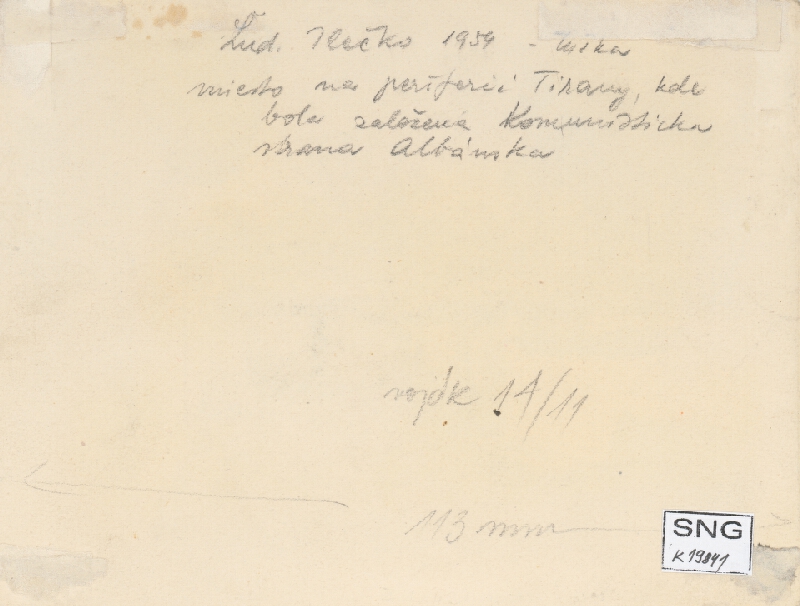 Ľud. Ilečko 1954 -
miesto na periferii Tirany, kde
bola založená Komunistická
strana Albánska
14/11
113 mm
SNG
K 19841